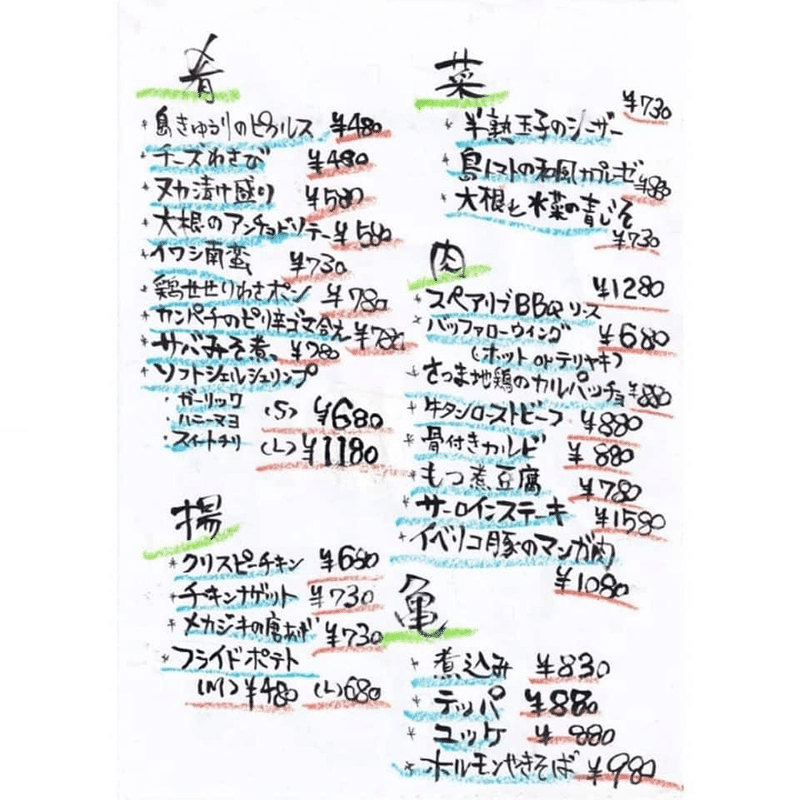 肴
島きゅうりのピクルス ¥480
チーズわさび ¥480
ヌカ漬け盛り ¥580
大根のアンチョビソテー ¥580
イワシ南蛮 ¥730
鶏せせりわさポン ¥780
カンパチのピリ辛ゴマ合え ¥780
サバみそ煮 ¥780
ソフトシェルシュリンプ
・ガーリック
・ハニーマヨ
・スイートチリ
(S) ¥680
(L) ¥1180
揚
クリスピーチキン ¥680
チキンナゲット ¥730
メカジキの唐あげ ¥730
フライドポテト
(M) ¥480 (L) 680
菜
半熟玉子のシーザー ¥730
島トマトの和風カプレーゼ ¥880
大根と水菜の青じそ
¥730
肉
スペアリブBBQソース ¥1280
バッファローウイング ¥680
(ホット or テリヤキ)
さつま地鶏のカルパッチョ ¥880
牛タンローストビーフ ¥880
骨付きカルビ ¥880
もつ煮豆腐 ¥780
サーロインステーキ ¥1580
イベリコ豚のマンガ肉
¥1080
亀
煮込み ¥830
テッパ ¥880
ユッケ ¥880
ホルモンやきそば ¥980